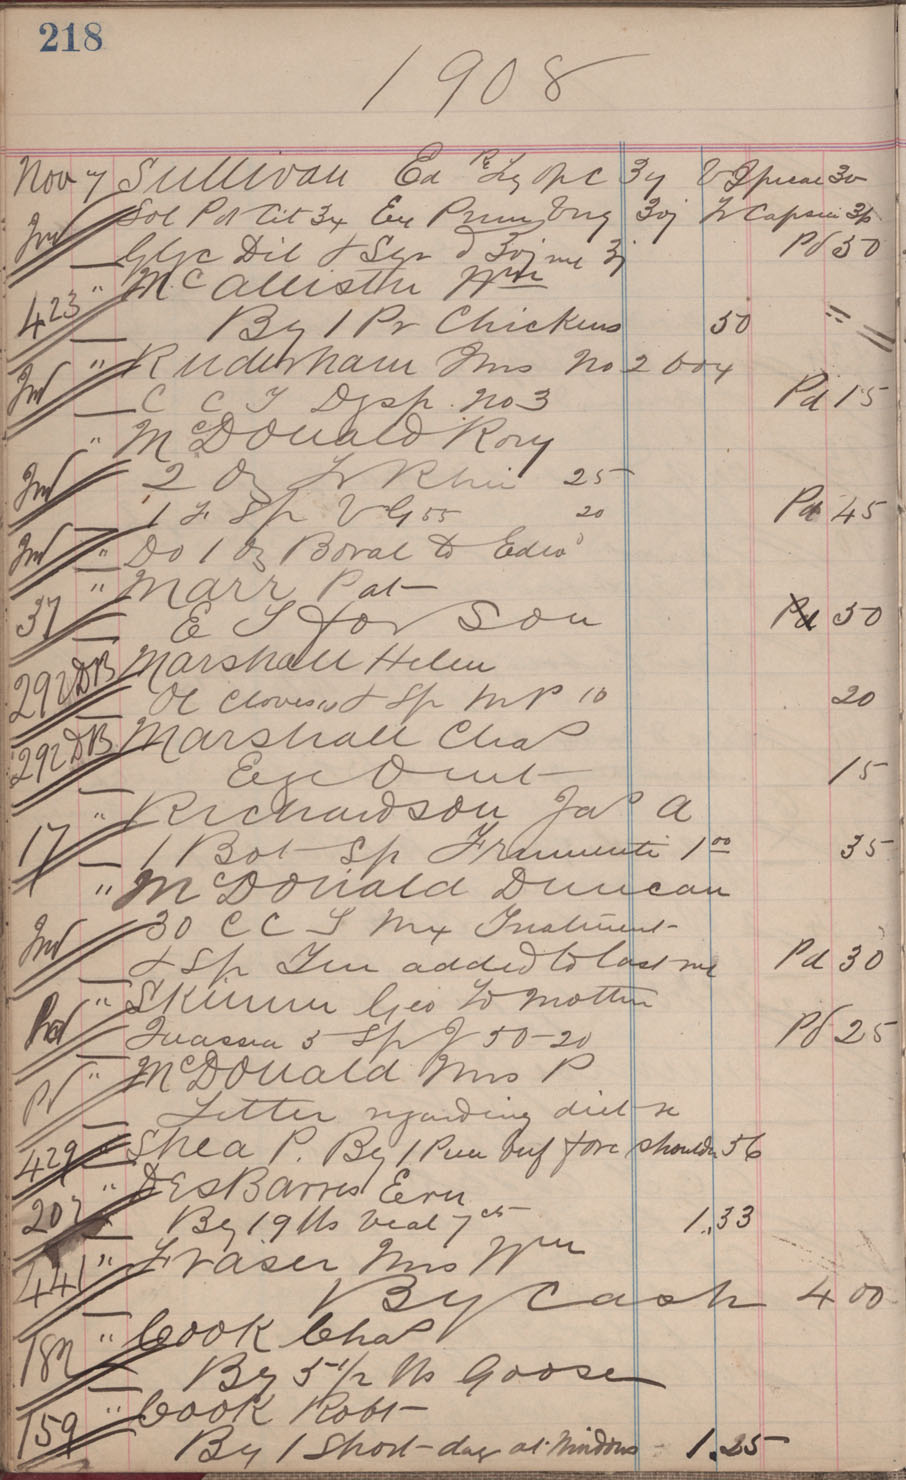 218
1908
Nov 7 Sullivan Ed Rx 3y V Ipecac 30
Sol Pot Cit 3x Ext Prun Virg 3vj Tr Capsici 3fs
Glyc Dil & Syr 3vj Pd 30
423 " McAllister Wm
By 1 Pr Chickens 50 "
" Ruderham Mrs No 2 box
C C T Dysp. No 3 Pd 15
" McDonald Rory
2 Oz Tr Rhei 25
1 F Sp V G 55 20 Pd 45
" Do 1 Oz Boval to Edw
" Marr Pat
37 E T for Son Pd 50
292 DB Marshall Helen
Ol Cloves 10 & Sp M P 10 20
292 DB Marshall Chas
Eye Oint 15
" Richardson Jas A
17 1 Bot Sp Frumenti 1 00 35
" McDonald Duncan
30 C C T Mx Treatment
& Sp Jun added to last me Pd 30
Pd " Skinner Geo to Mother
Quassia 5 Sp J 50-20 Pd 25
Pd " McDonald Mrs P
Letter regarding diet &c
429 " Shea P. By 1 Piece beef fore shoulder 56
" DesBarres Ern
207 By 19 lbs Veal 7 cts 1.33
441 " Fraser Mrs Wm
By Cash 4 00
182 " Cook Chas
By 5 1/2 lbs Goose
" Cook Robt
159 By 1 Short day at Windows - 1.25